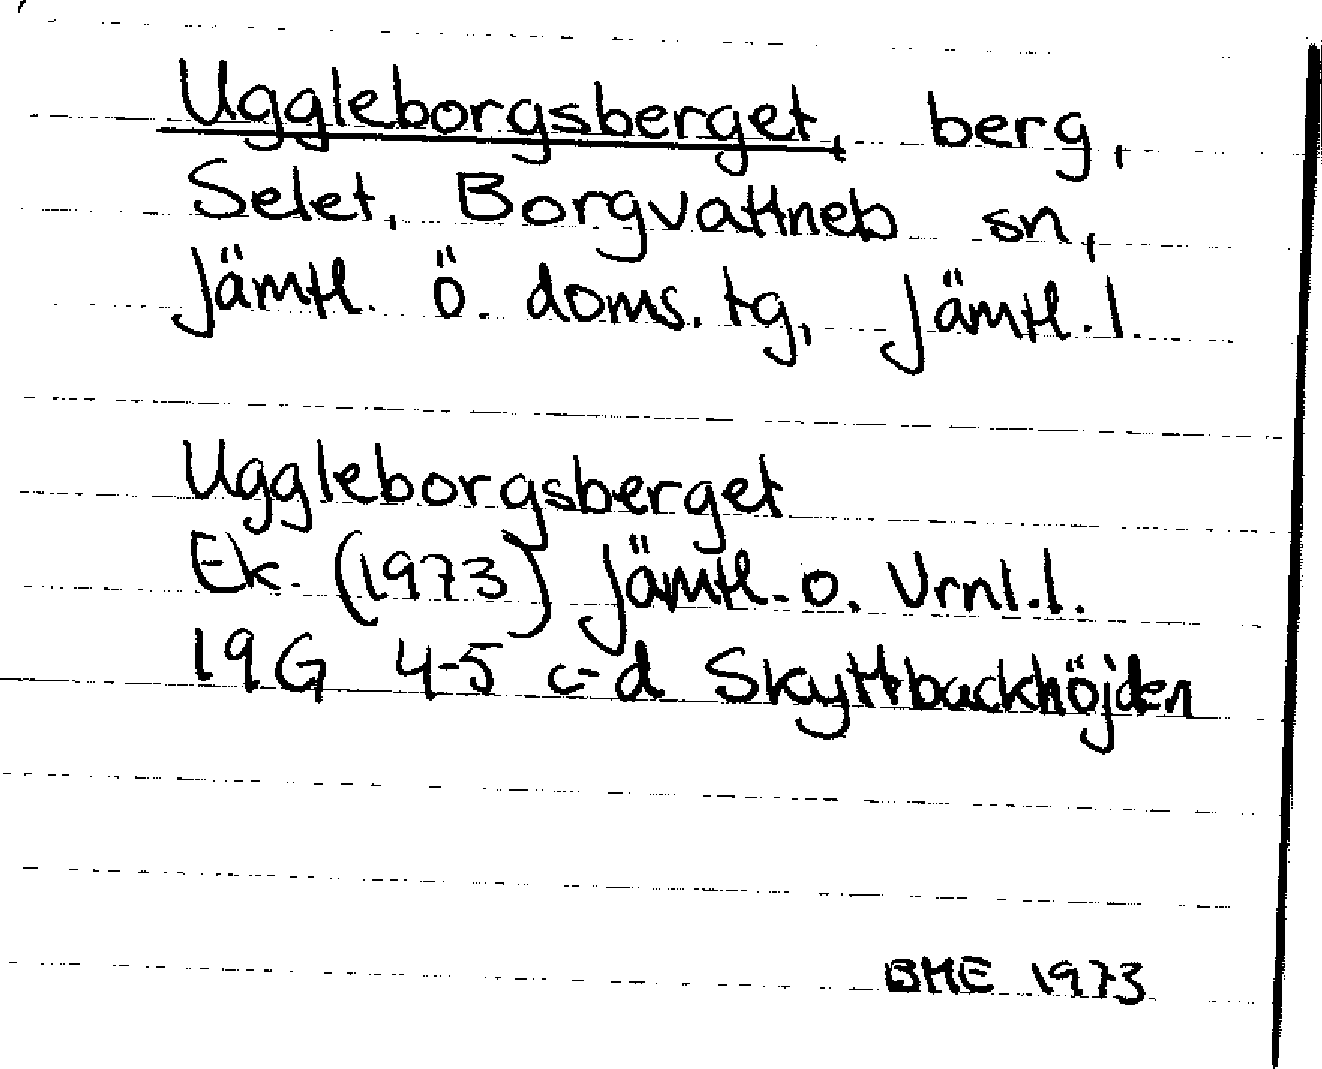 Uggleborgsberget, berg,
Selet, Borgvattneb sn,
Jämtl. ö. doms. tg, Jämtl. l.
Uggleborgsberget
Ek. (1973) Jämtl. o. Vrnl. l.
19G 4-5 c-d Skyttbackhöjden
BME 1973